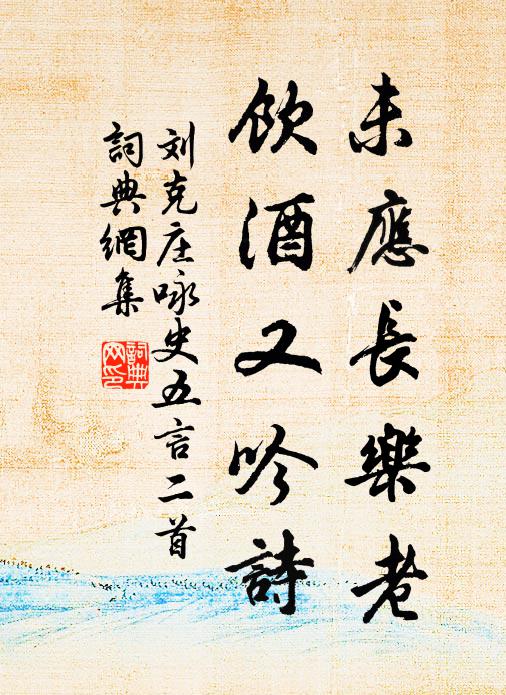 未應長樂老
飲酒又吟詩
刘克庄咏史五言二首
詞典網集
詞典
网印